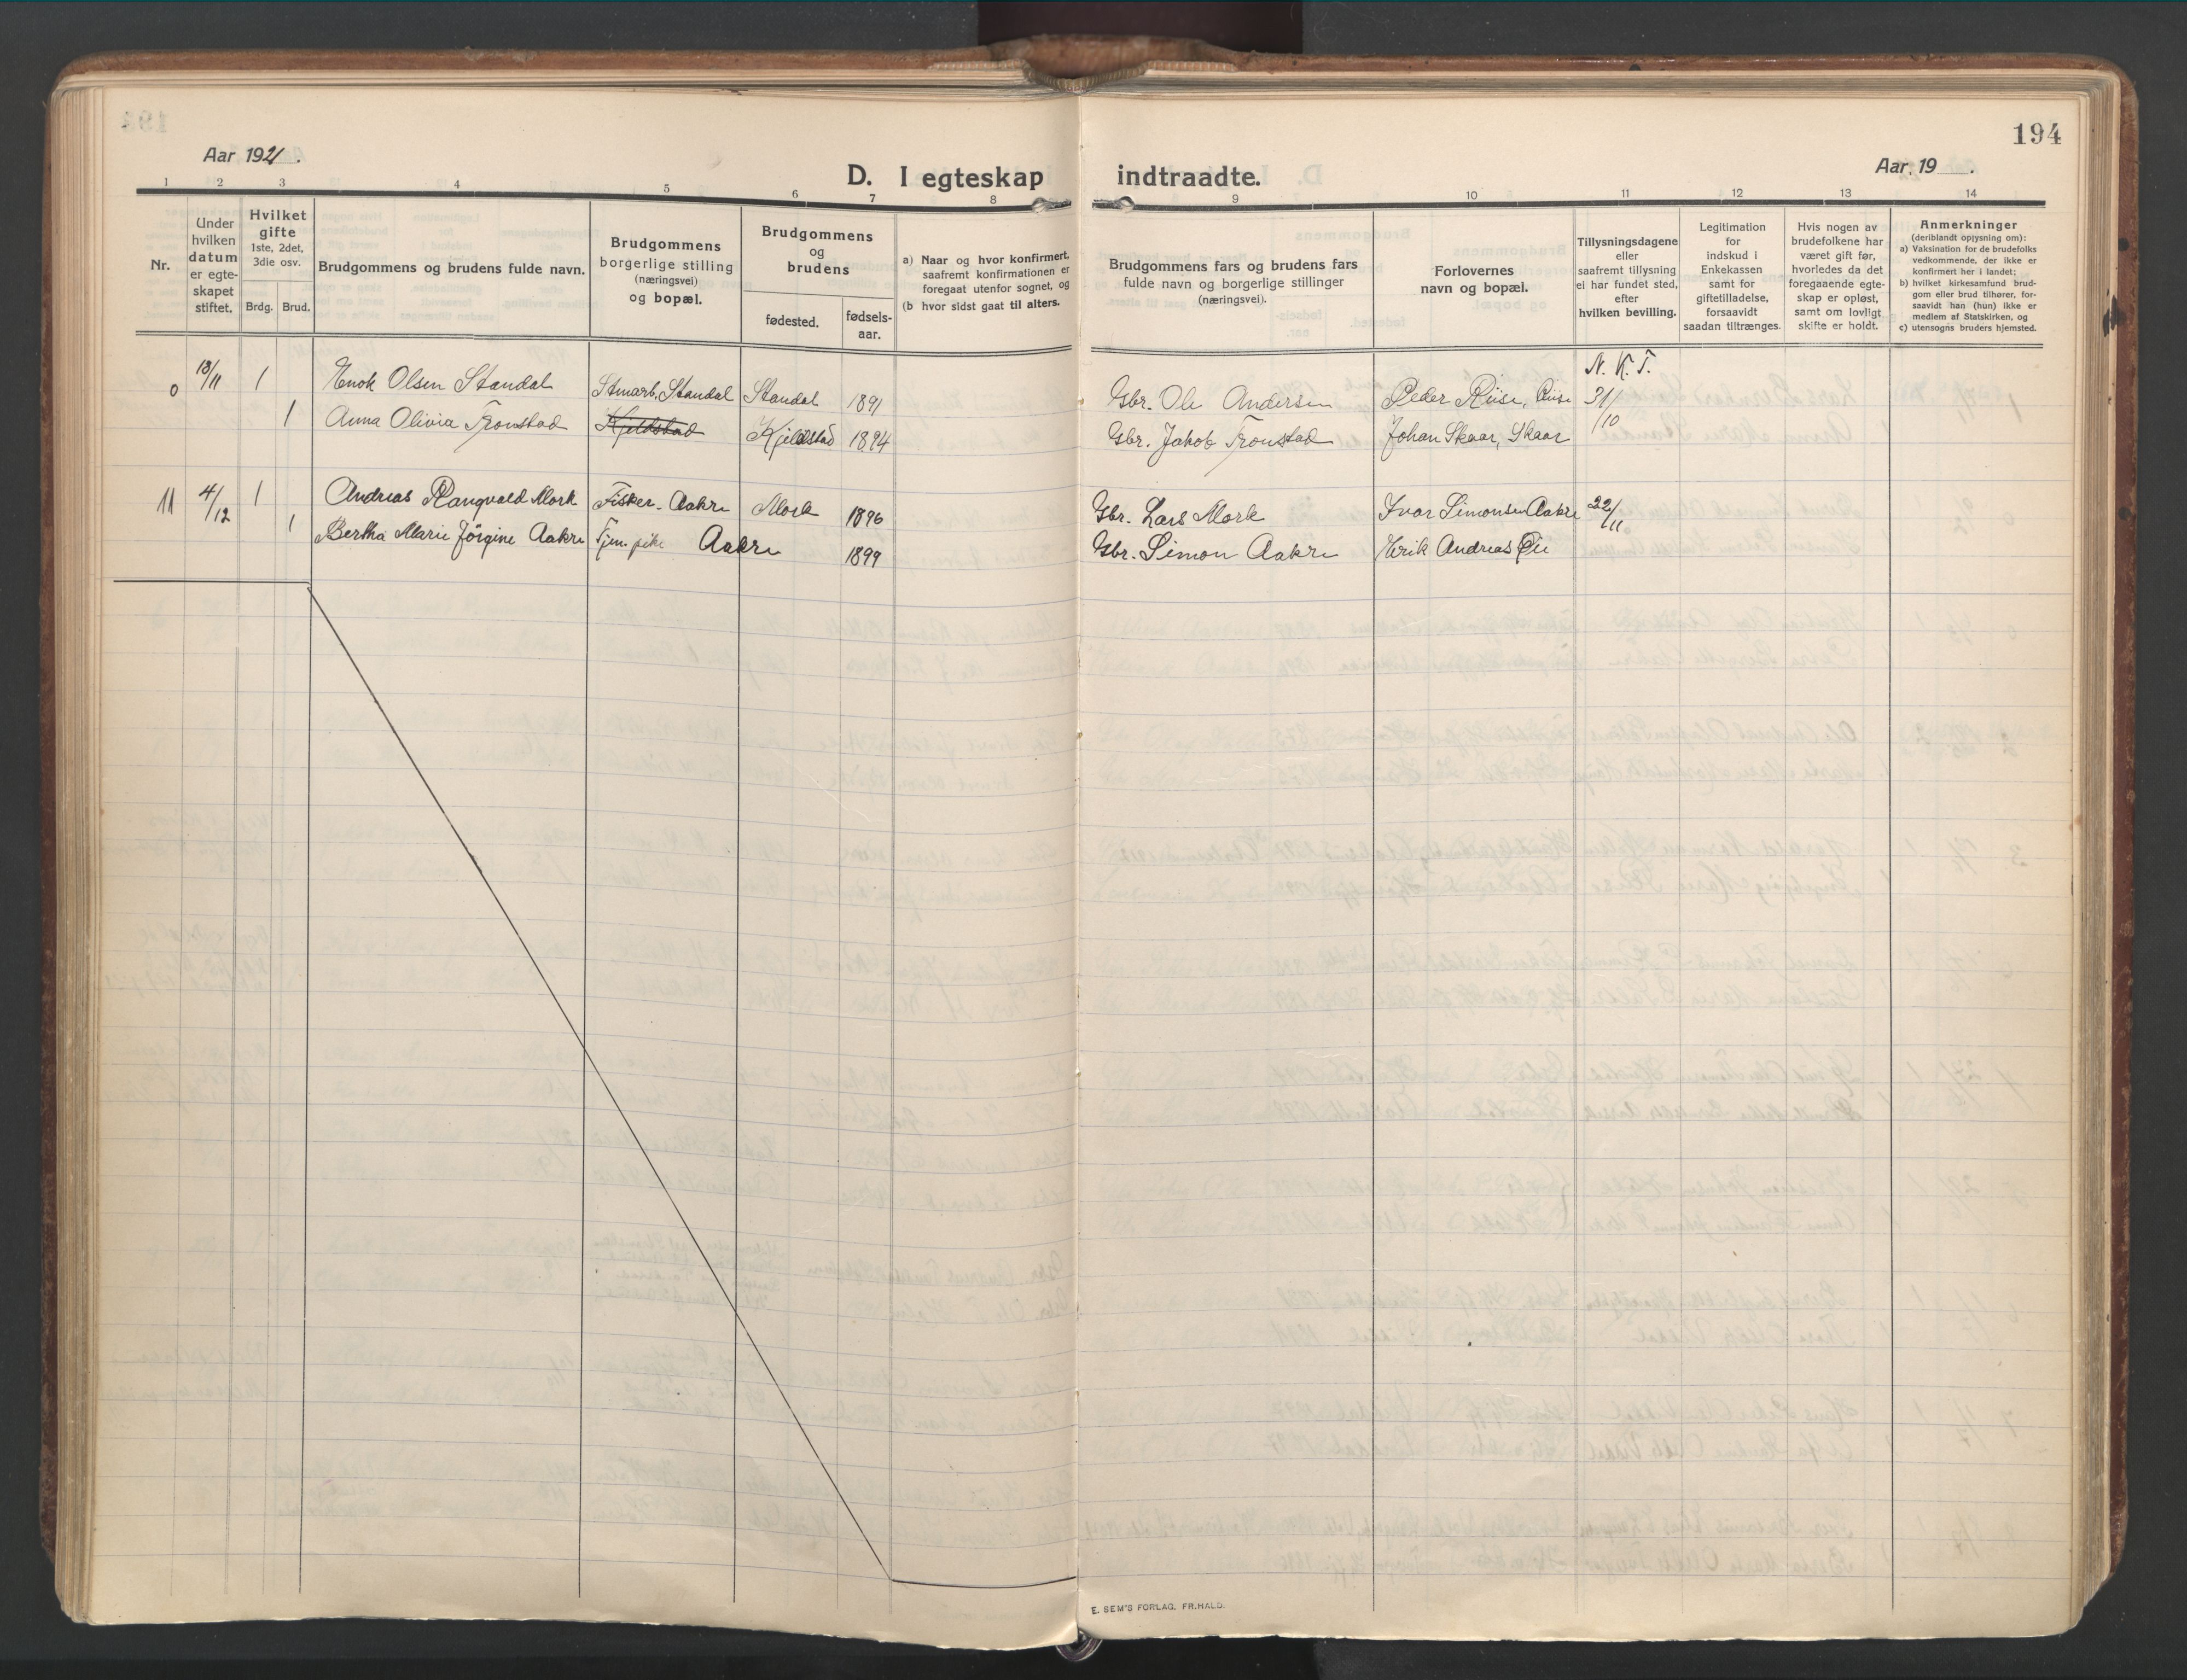 194
Aar 1921.
Aar 19 .
D. I egteskap indtraadte.
1 2 3 4 5 6 7 8 9 10 11 12 13 14
Nr.
Under hvilken datum er egte-skapet stiftet.
Hvilket gifte 1ste, 2det, 3die osv.
Brdg. Brud.
Brudgommens og brudens fulde navn.
Brudgommens borgerlige stilling (næringsvei) og bopæl.
Brudgommens og brudens
fødested. fødsels-aar.
a) Naar og hvor konfirmert, saafremt konfirmationen er foregaat utenfor sognet, og
(b hvor sidst gaat til alters.
Brudgommens fars og brudens fars fulde navn og borgerlige stillinger (næringsvei).
Forlovernes navn og bopæl.
Tillysningsdagene eller saafremt tillysning ei har fundet sted, efter hvilken bevilling.
Legitimation for indskud i Enkekassen samt for giftetilladelse, forsaavidt saadan tiltrænges.
Hvis nogen av brudefolkene har været gift før, hvorledes da det foregaaende egte-skap er opløst, samt om lovligt skifte er holdt.
Anmerkninger
(deriblandt opjysning om):
a) Vaksination for de brudefolks vedkommende, der ikke er konfirmert her i landet;
b) hvilket kirkesamfund brud-gom eller brud tilhører, for-saavidt han (hun) ikke er medlem af Statskirken, og
c) utensogns bruders hjemsted.
N. K. T.
0 13/11 1 Enok Olsen Standal Stmarb. Standal Standal 1891 Gbr. Ole Andersen Peder Riise, Riise 31/10
1 Anna Olivia Tronstad Kjeldstad Kjeldstad 1894 Gbr. Jakob Tronstad Johan Skaar, Skaar
11 4/12 1 Andreas Rangvald Mork Fisker. Aakre Mork 1896 Gbr. Lars Mork Ivar Simonsen Aakre 22/11
1 Bertha Marie Jörgine Aakre Tjen. pike Aakre 1899 Gbr. Simon Aakre Erik Andreas
E. SEM'S FORLAG, FR.HALD.